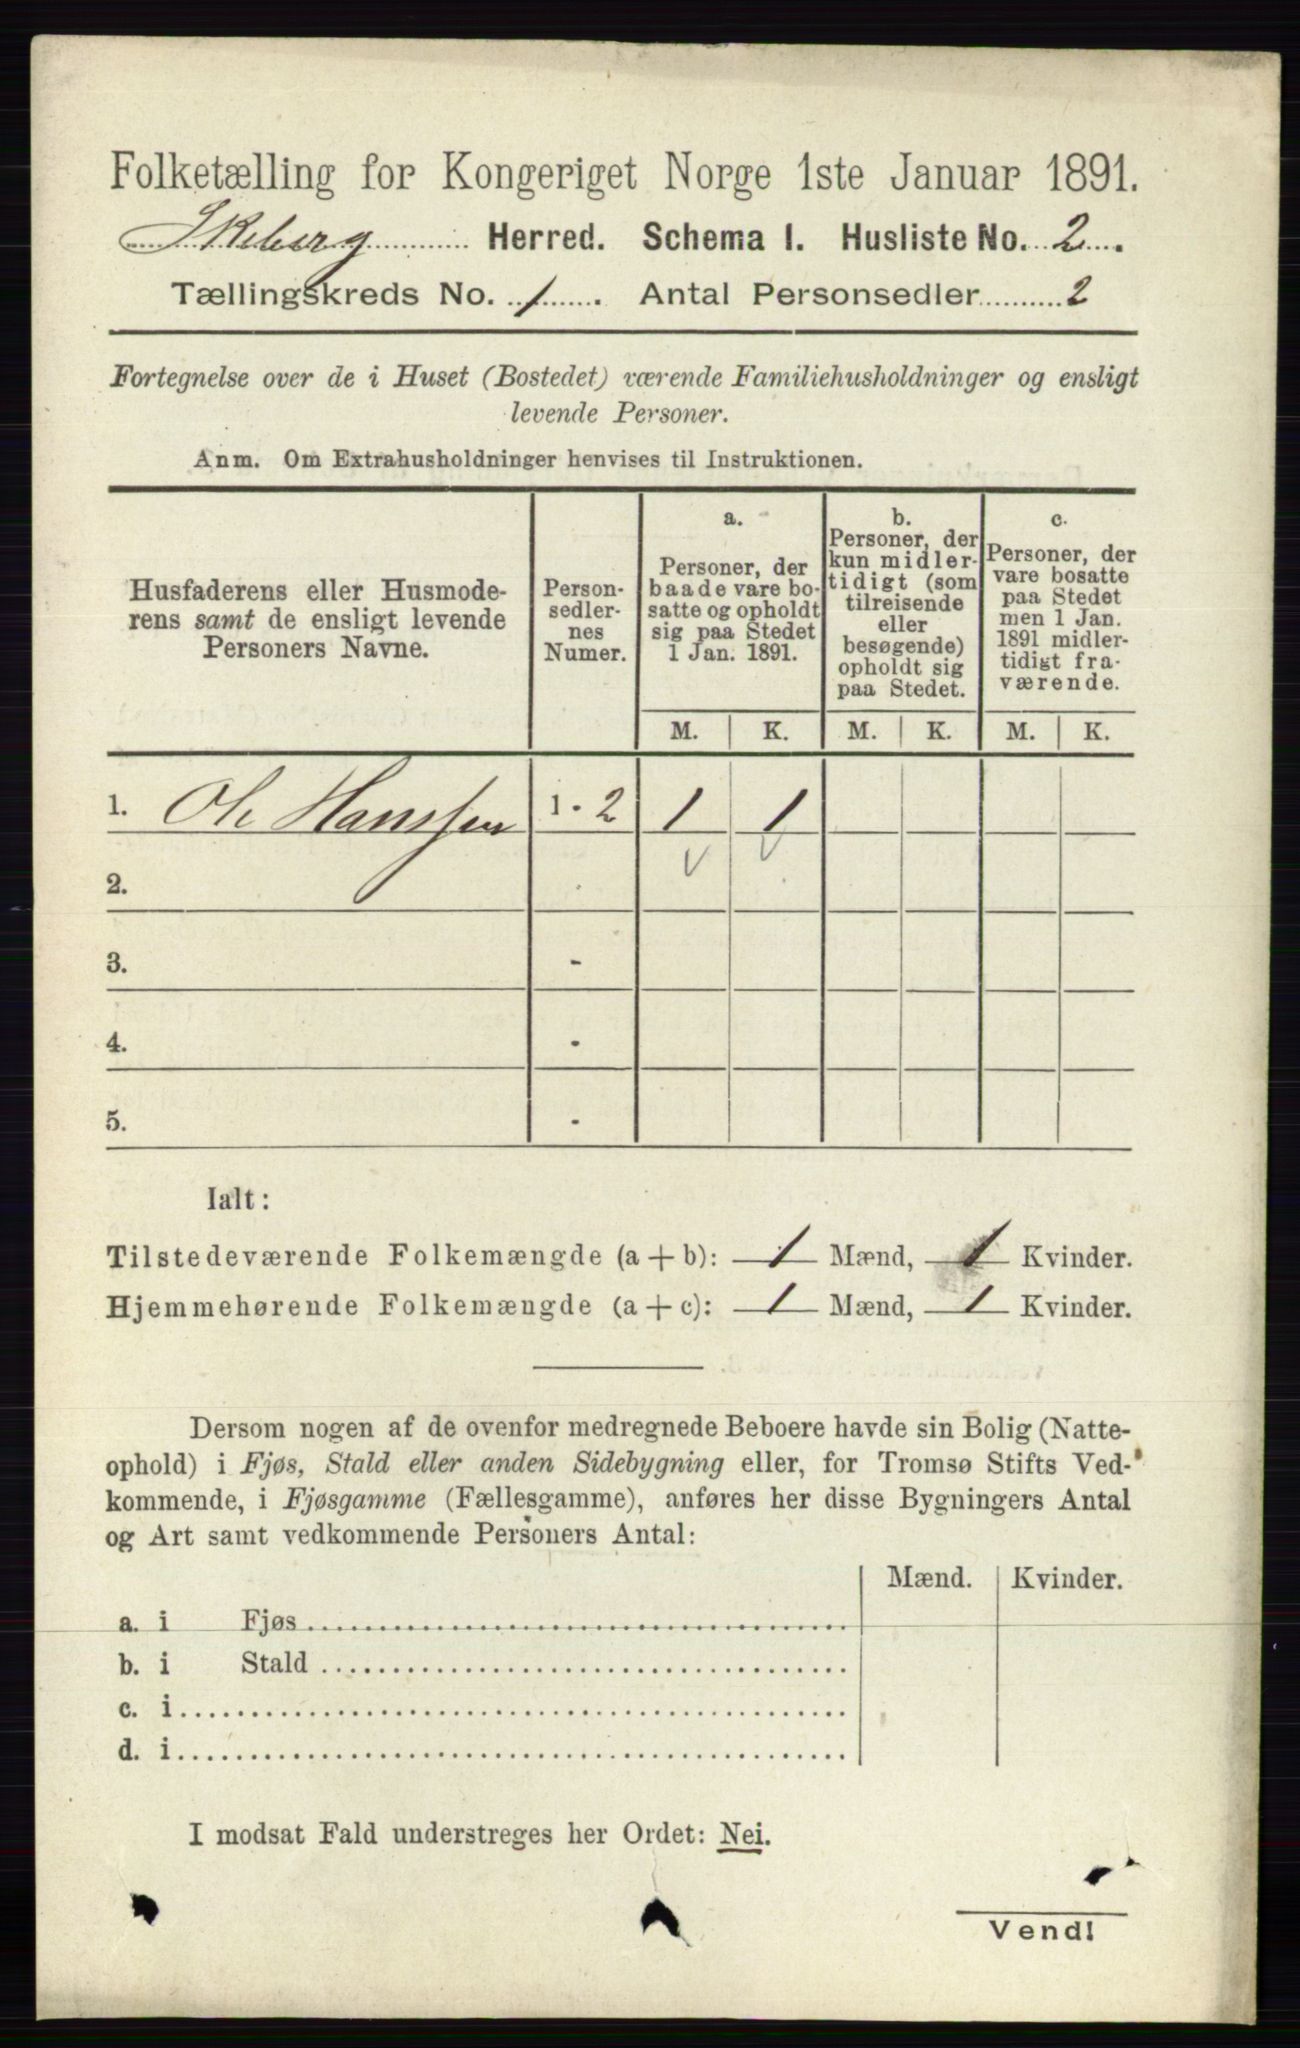 Folketælling for Kongeriget Norge 1ste Januar 1891.
Skeberg Herred. Schema I. Husliste No. 2.
Tællingskreds No. 1. Antal Personsedler 2
Fortegnelse over de i Huset (Bostedet) værende Familiehusholdninger og ensligt
levende Personer.
Anm. Om Extrahusholdninger henvises til Instruktionen.
Husfaderens eller Husmode-
rens samt de ensligt levende
Personers Navne.
Person-
sedler-
nes
Numer.
a.
Personer, der
baade vare bo-
satte og opholdt
sig paa Stedet
1 Jan. 1891.
b.
Personer, der
kun midler-
tidigt (som
tilreisende
eller
besøgende)
opholdt sig
paa Stedet.
c.
Personer, der
vare bosatte
paa Stedet
men 1 Jan.
1891 midler-
tidigt fra-
værende.
M. K. M. K. M. K.
1. Ole Hanssen 1 - 2 1 1
2.
3. -
4. -
5. -
Ialt:
Tilstedeværende Folkemængde (a + b): 1 Mænd, 1 Kvinder.
Hjemmehørende Folkemængde (a + c): 1 Mænd, 1 Kvinder.
Dersom nogen af de ovenfor medregnede Beboere havde sin Bolig (Natte-
ophold) i Fjøs, Stald eller anden Sidebygning eller, for Tromsø Stifts Ved-
kommende, i Fjøsgamme (Fællesgamme), anføres her disse Bygningers Antal
og Art samt vedkommende Personers Antal:
Mænd. Kvinder.
a. i Fjøs
b. i Stald
c. i
d. i
I modsat Fald understreges her Ordet: Nei.
Vend!